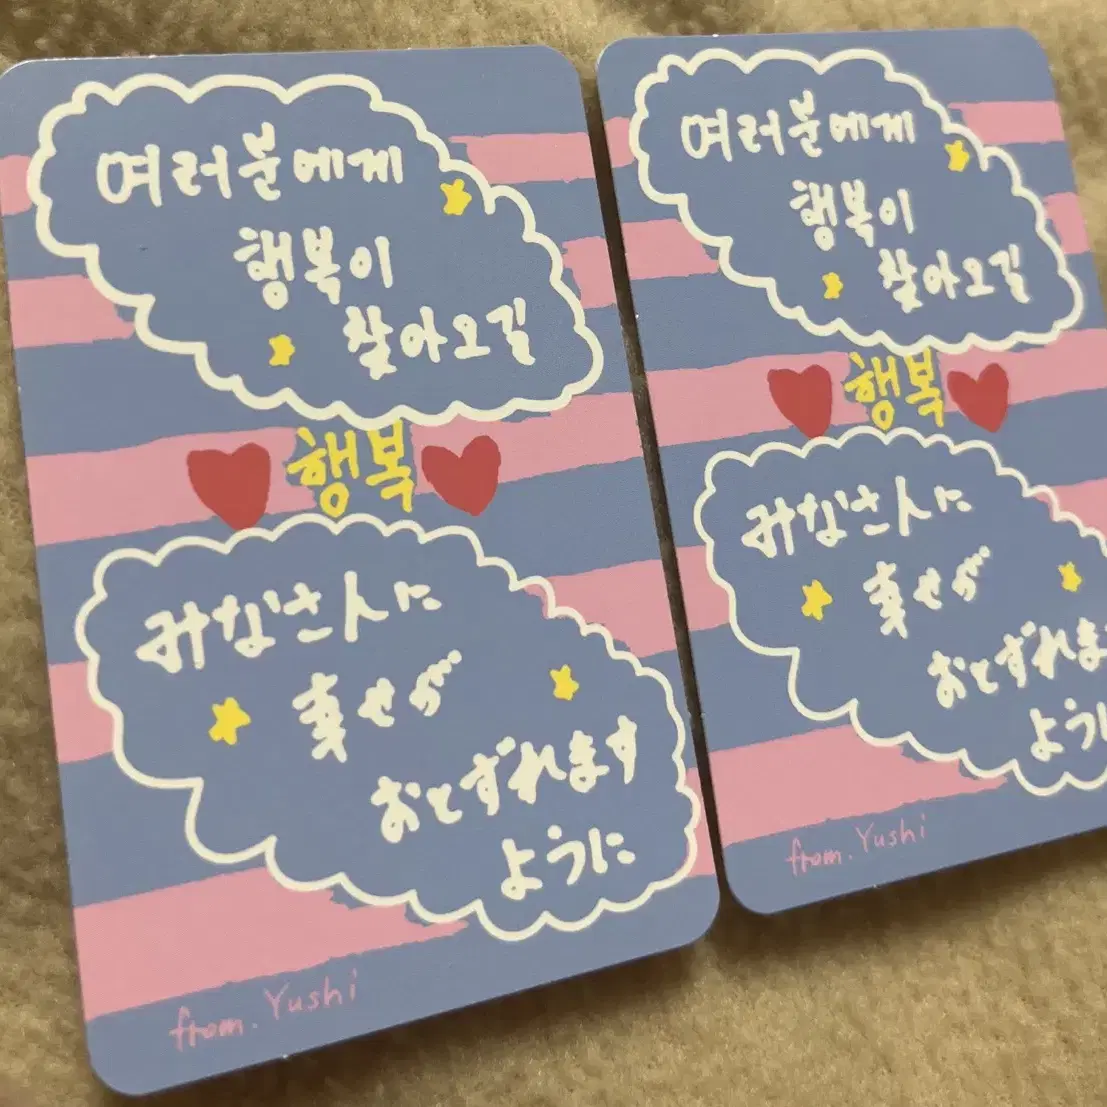 여러분에게
행복이
찾아오길
행복
みなさんに
幸せが
おとずれます
ように
from. Yushi
여러분에게
행복이
찾아오길
행복
みなさんに
幸せが
おとずれま
ように
from. Yushi